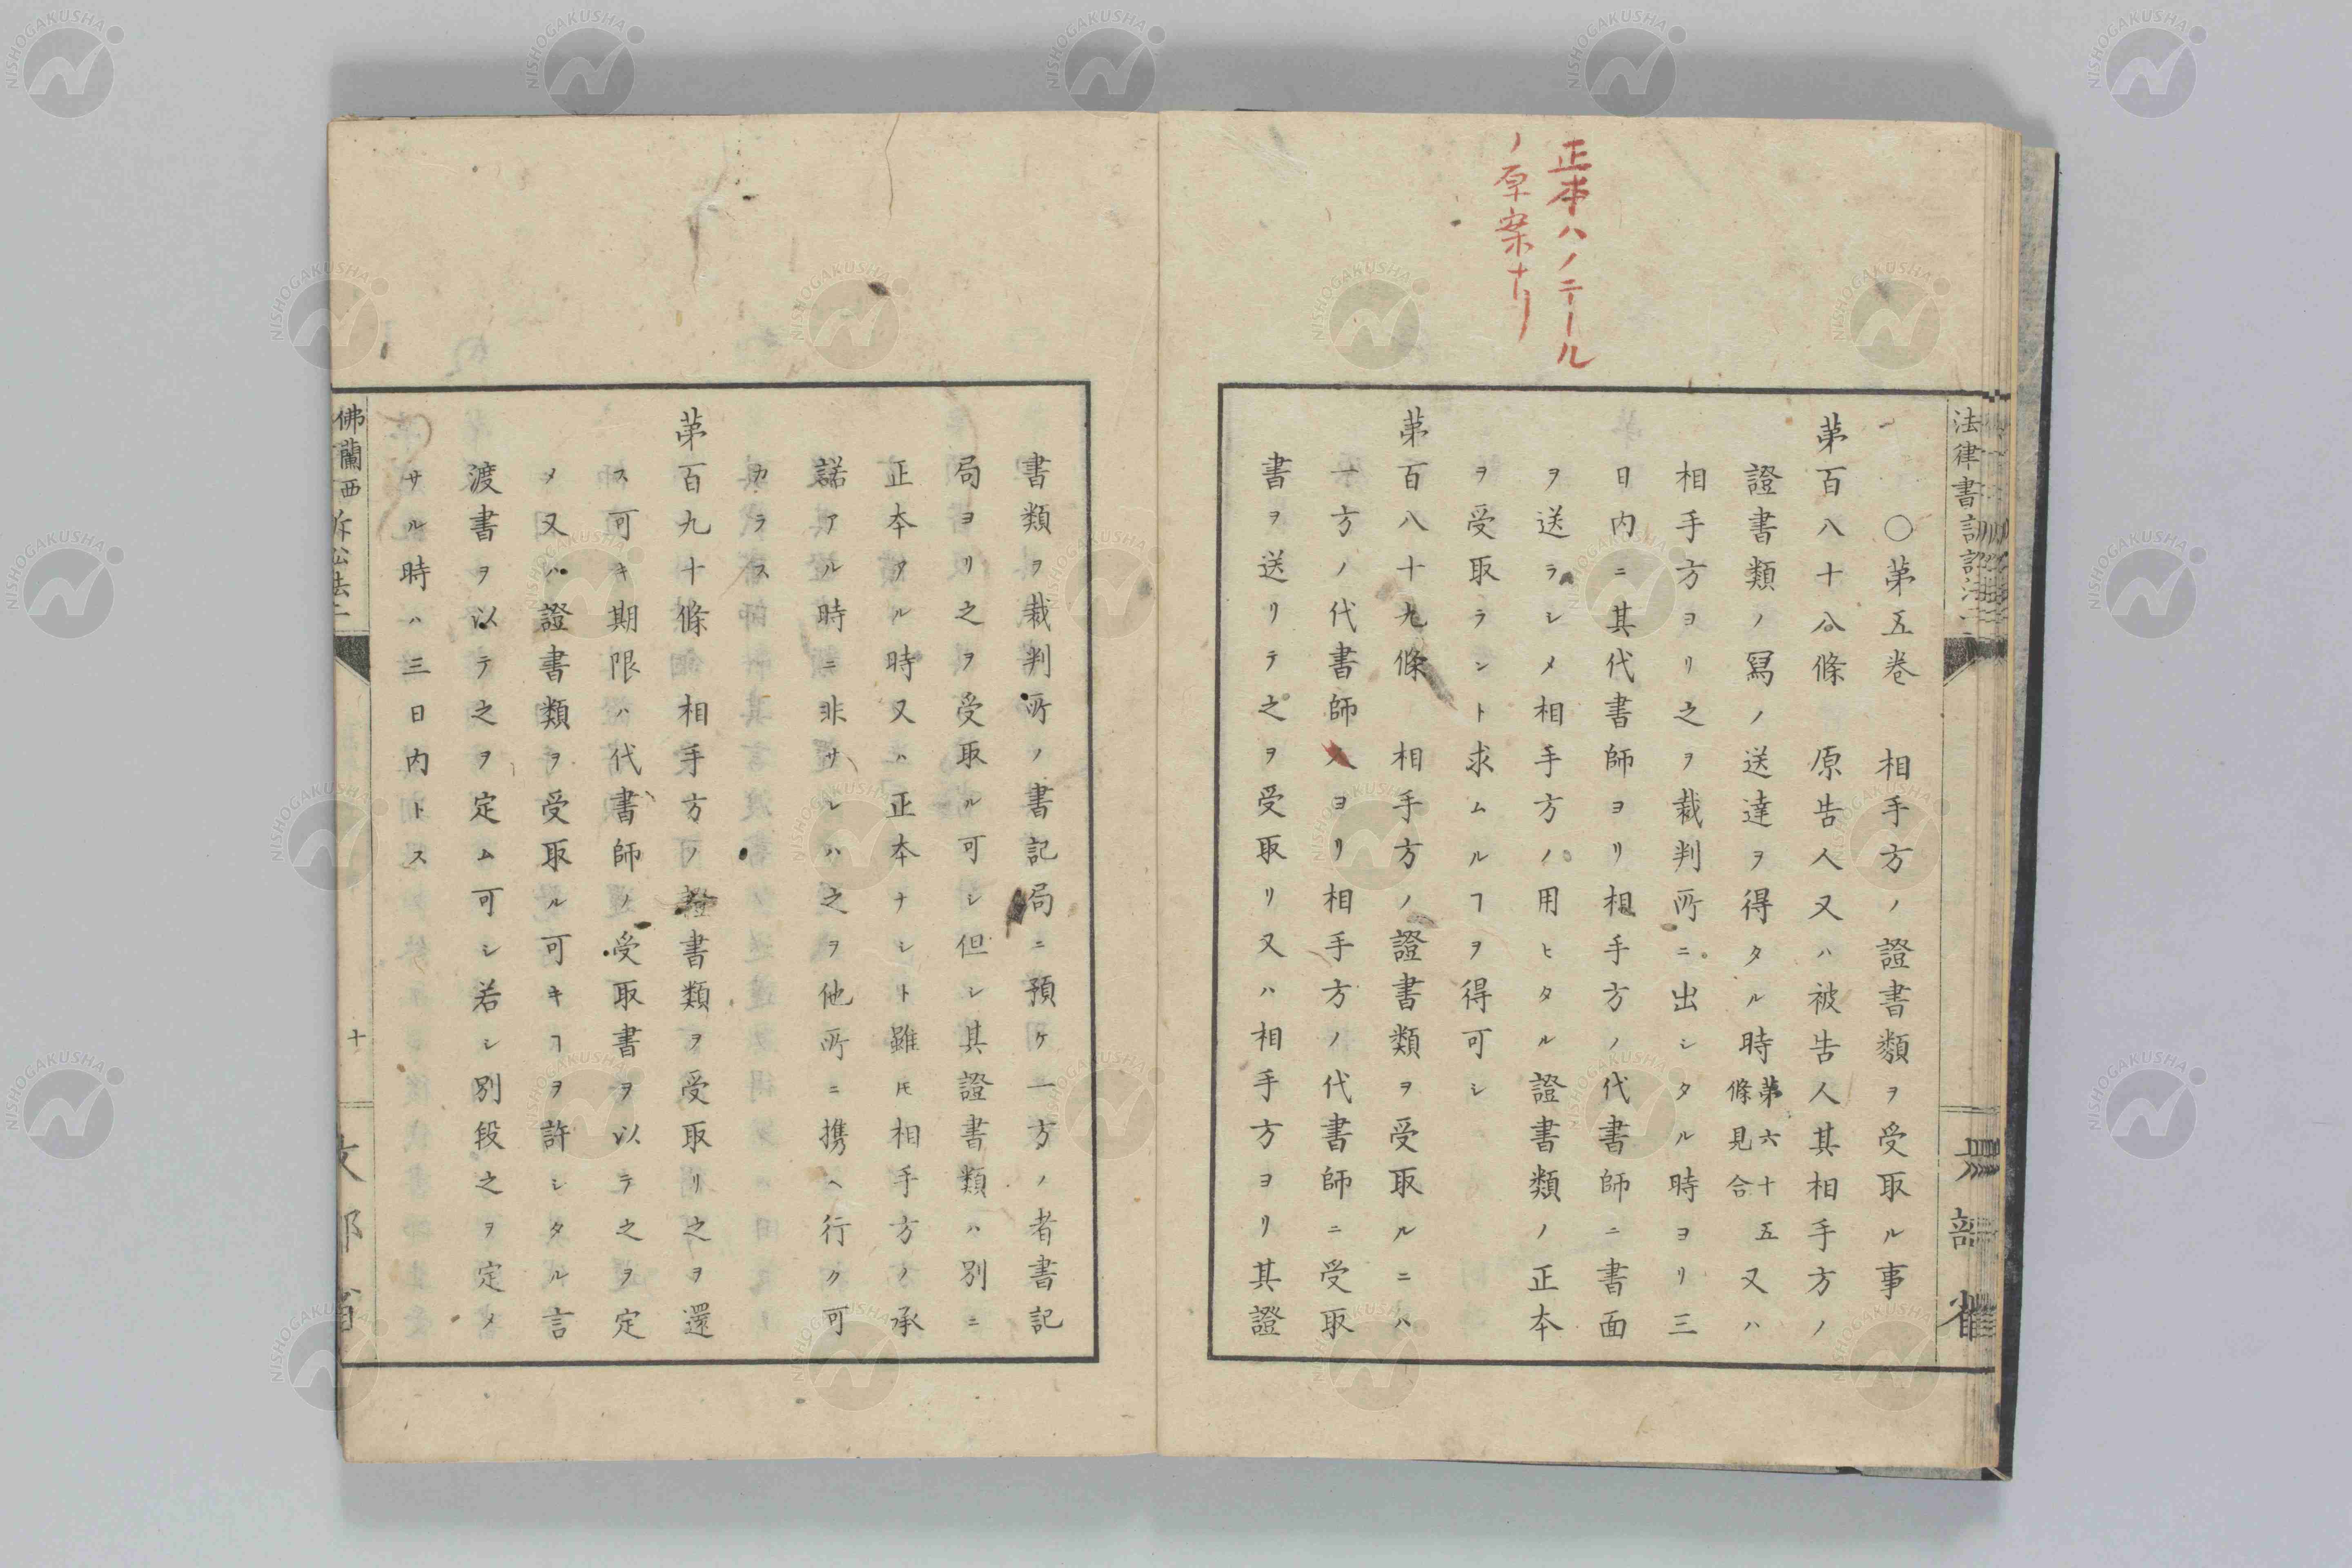 正本ハノテール
ノ原案ナリ
○第五巻　相手方ノ證書類ヲ受取ル事
第百八十八條　原告人又ハ被告人其相手方ノ
證書類ノ冩ノ送達ヲ得タル時第六十五條見合又ハ
相手方ヨリ之ヲ裁判所ニ出シタル時ヨリ三
日内ニ其代書師ヨリ相手方ノ代書師ニ書面
ヲ送ラシメ相手方ノ用ヒタル證書類ノ正本
ヲ受取ラント求ムルヿヲ得可シ
第百八十九條　相手方ノ證書類ヲ受取ルニハ
一方ノ代書師ヨリ相手方ノ代書師ニ受取
書ヲ送リテ之ヲ受取リ又ハ相手方ヨリ其證
書類ヲ裁判所ノ書記局ニ預ケ一方ノ者書記
局ヨリ之ヲ受取ル可シ但シ其證書類ハ別ニ
正本アル時又ハ正本ナシト雖𪜈相手方ノ承
諾アル時ニ非サレハ之ヲ他所ニ携ヘ行ク可
カラス
第百九十條　相手方ノ證書類ヲ受取リ之ヲ還
ス可キ期限ハ代書師ノ受取書ヲ以テ之ヲ定
メ又ハ證書類ヲ受取ル可キヿヲ許シタル言
渡書ヲ以テ之ヲ定ム可シ若シ別段之ヲ定メ
サル時ハ三日内トス
佛蘭西訴訟法二
十
文部省
NISHOGAKUSHA